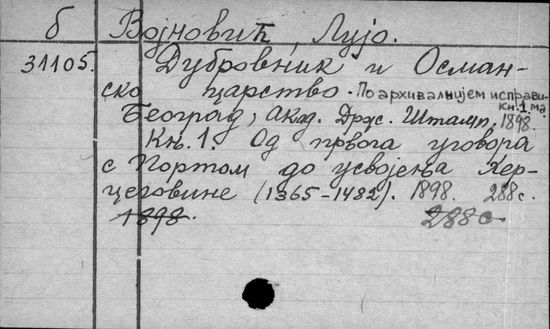 б Војновић, Лујо.
31105. Дубровник и Осман-
ско царство. По архивалнијем исправи-
књ. 1 ма
Београд, Акад. Друс. Штамп, 1898.
Књ. 1. Од првога уговора
с Портом до усвојења Хер-
цеговине (1365-1482). 1898. 288 с.
1898. 288 с.